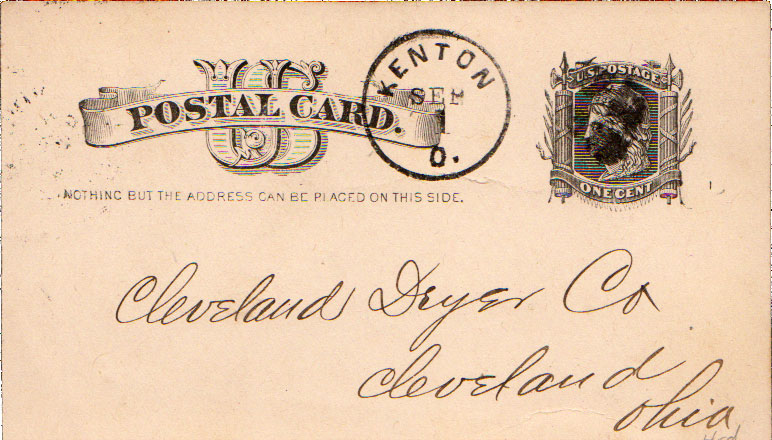 US
POSTAL CARD.
KENTON
SEP
1
O.
U.S. POSTAGE
ONE CENT
NOTHING BUT THE ADDRESS CAN BE PLACED ON THIS SIDE.
Cleveland Dryer Co
Cleveland
Ohio